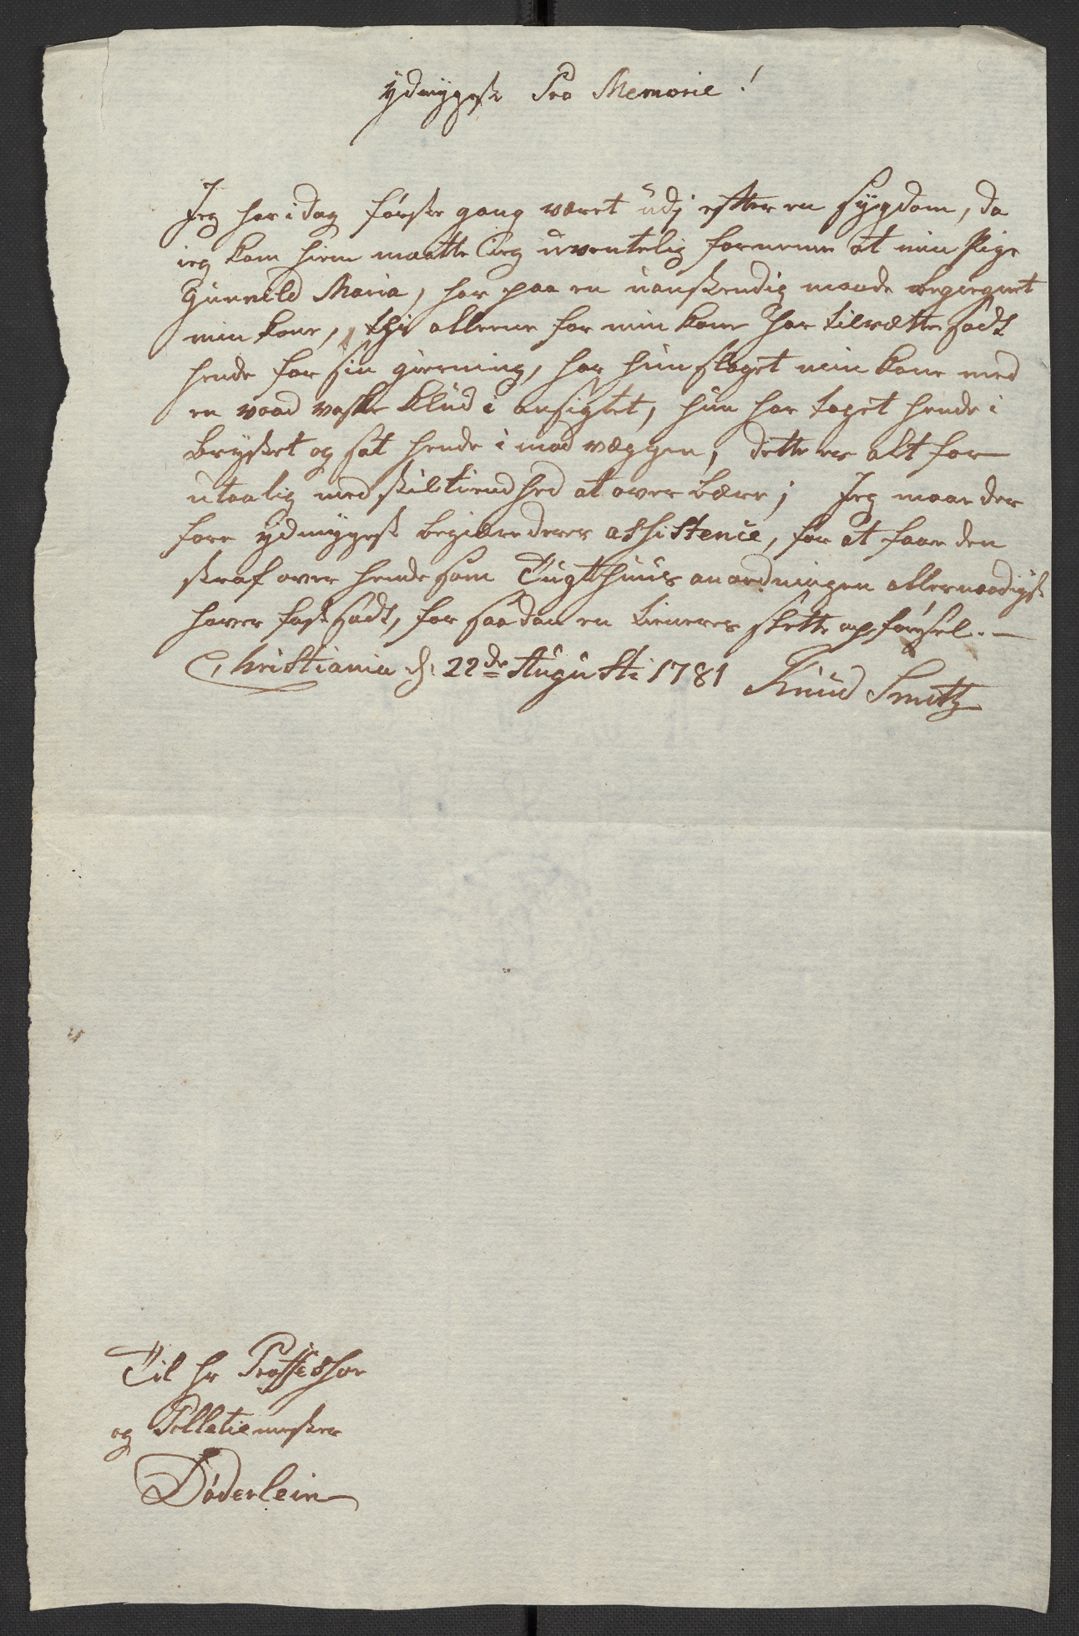 Ydmygest Pro Memorie!
Jeg har i dag første gang været üdj efter en Sygdom, da
ieg kom hiem maatte Jeg uventelig fornemme at min Pige
Gunnild Maria, har paa en uanstendig maade begiegnet
min kone, thi allene for min kone har tilrættesadt
hende for sin gierning, har hun slaget min kone med
en vaad vaske Klud i ansigtet, hun har taget hende i
brystet og sat hende i mod væggen, dette er alt for
utaalig med stiltiendhed at over bære; Jeg maae der
fore ydmygest begiære deres assistence, for at faae den
straf over hende som Tugthuus anordningen allernaadigst
haver fastsadt, for saadan en tieneres slette opførsel. —
Christiania d: 22de Augusti 1781 Knud Smith
Til Hr Proffessor
og Politiemester
Døderlein